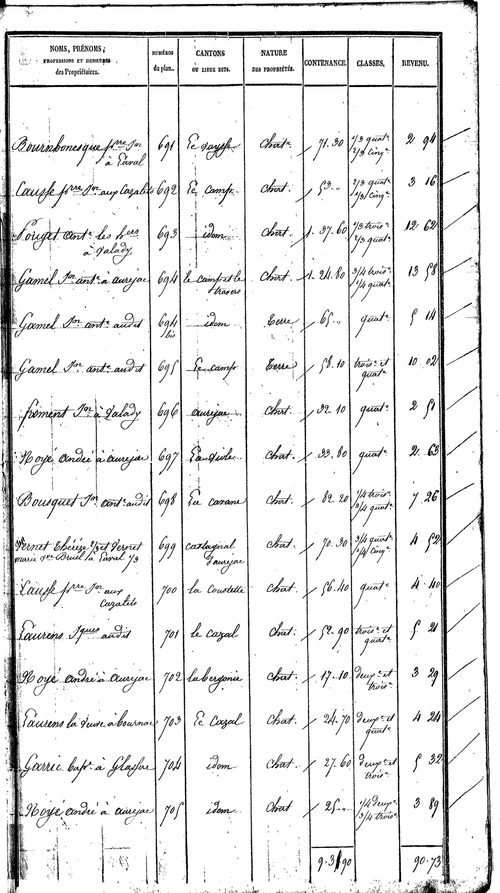 NOMS, PRÉNOMS, PROFESSIONS ET DEMEURES des Propriétaires. NUMÉROS du plan. CANTONS OU LIEUX DITS. NATURE DES PROPRIÉTÉS. CONTENANCE. CLASSES. REVENU.
Bournhonesque pre Jn à Laval 691 Chat. 71.30 1/3 quat. 2/3 cinq. 2 94
Causse pre Jn aux Cazalets 692 Le camp Chat. 53 1/3 quat. 2/3 cinq. 3 16
Pouget ant. les à Valady 693 idem Chat. 1.37.60 1/3 trois. 2/3 quat. 12 62
Gamel Jn ant. à aurejac 694 le camp et le travers Chat. 1.24.80 3/4 trois. 1/4 quat. 13 58
Gamel Jn ant. audit 694 bis idem Terre 65 quat. 5 14
Gamel Jn ant. audit 695 Le camp Terre 58.10 trois. et quat. 10 02
froment Jn à Valady 696 aurejac Chat. 32.10 quat. 2 51
Noyé andré à aurejac 697 Chat. 33.80 quat. 2 63
Bousquet Jn ant. audit 698 La cavane Chat. 82.20 1/4 trois. 3/4 quat. 7 26
Vernet thérèse 2/3 et Vernet marie Bruel à Laval 1/3 699 castagnal d'aurejac Chat. 70.30 3/4 quat. 1/4 cinq. 4 52
Causse pre Jn aux Cazalets 700 la Coustette Chat. 56.40 quat. 4 40
Laurens Jques audit 701 le cazal Chat. 52.90 trois. et quat. 5 21
Noyé andré à aurejac 702 la bergerie Chat. 17.10 deux. et trois. 3 29
Laurens la Veuve à bournac 703 Le Cazal Chat. 24.70 deux. et quat. 4 24
Garric bapt. à Glassac 704 idem Chat. 27.60 deux. et trois. 5 32
Noyé andré à aurejac 705 idem Chat 25 1/4 deux. 3/4 trois. 3 89
9.31.90 90.73